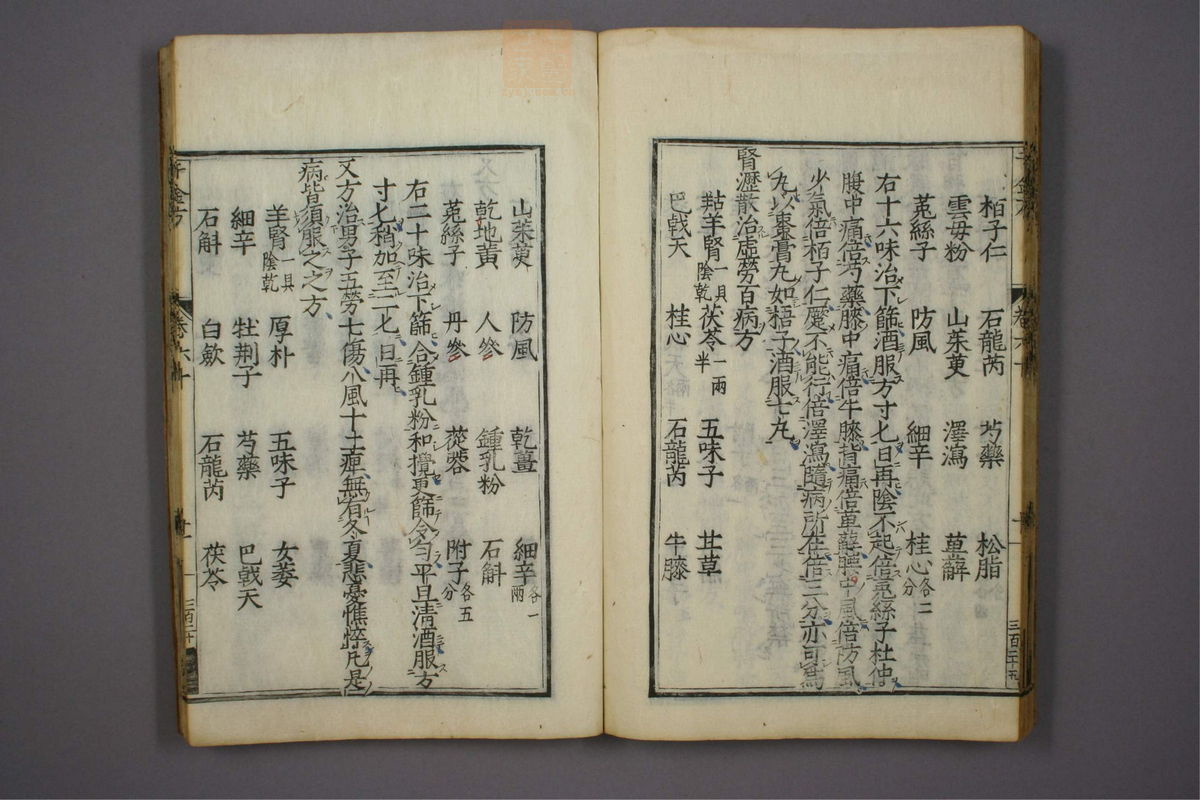 栢子仁 石龍芮 芍藥 松脂
雲母粉 山茱萸 澤瀉 萆薢
菟絲子 防風 細辛 桂心各二分
右十六味治下篩酒服方寸匕日再陰不起倍菟絲子杜仲
腹中痛倍芍藥膝中痛倍牛膝背痛倍萆薢腰中風倍防風
少氣倍栢子仁蹷不能行倍澤瀉隨病所在倍三分亦可爲
丸以棗膏丸如梧子酒服七丸
腎瀝散治虛勞百病方
羖羊腎一具陰乾 茯苓一兩半 五味子 甘草
巴戟天 桂心 石龍芮 牛膝
山茱萸 防風 乾薑 細辛各一兩
乾地黃 人參 鍾乳粉 石斛
菟絲子 丹參 蓯蓉 附子各五分
右二十味治下篩合鍾乳粉和攪更篩令勻平旦清酒服方
寸匕稍加至二匕日再
又方治男子五勞七傷八風十二痺無有冬夏悲憂憔悴凡是
病皆須服之之方
羊腎一具陰乾 厚朴 五味子 女萎
細辛 牡荆子 芍藥 巴戟天
石斛 白歛 石龍芮 茯苓
三百二十五